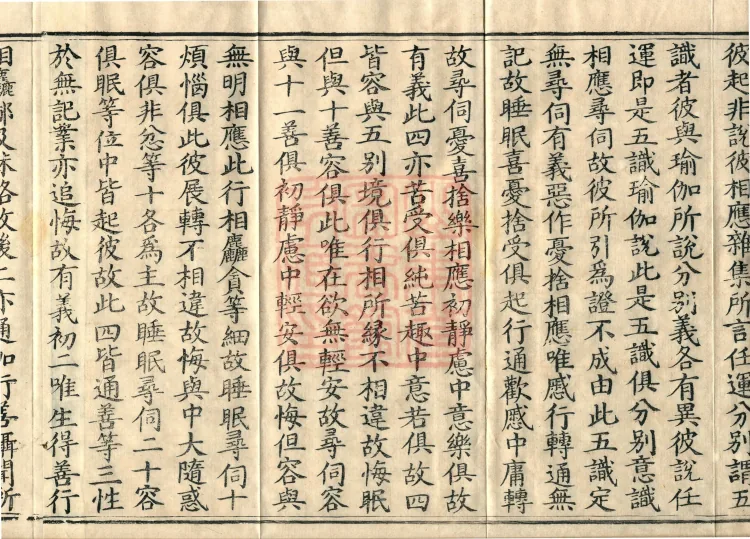 彼起非說彼相應雜集所言任運分別謂五
識者彼與瑜伽所說分別義各有異彼說任
運即是五識瑜伽說此是五識俱分別意識
相應尋伺故彼所引為證不成由此五識定
無尋伺有義惡作憂捨相應唯慼行轉通無
記故睡眠喜憂捨受俱起行通歡慼中庸轉
故尋伺憂喜捨樂相應初靜慮中意樂俱故
有義此四亦苦受俱純苦趣中意苦俱故四
皆容與五別境俱行相所緣不相違故悔眠
但與十善容俱此唯在欲無輕安故尋伺容
與十一善俱初靜慮中輕安俱故悔但容與
無明相應此行相麤貪等細故睡眠尋伺十
煩惱俱此彼展轉不相違故悔與中大隨惑
容俱非忿等十各為主故睡眠尋伺二十容
俱眠等位中皆起彼故此四皆通善等三性
於無記業亦追悔故有義初二唯生得善行
相麤鄙及昧略故後二亦通加行善攝聞所